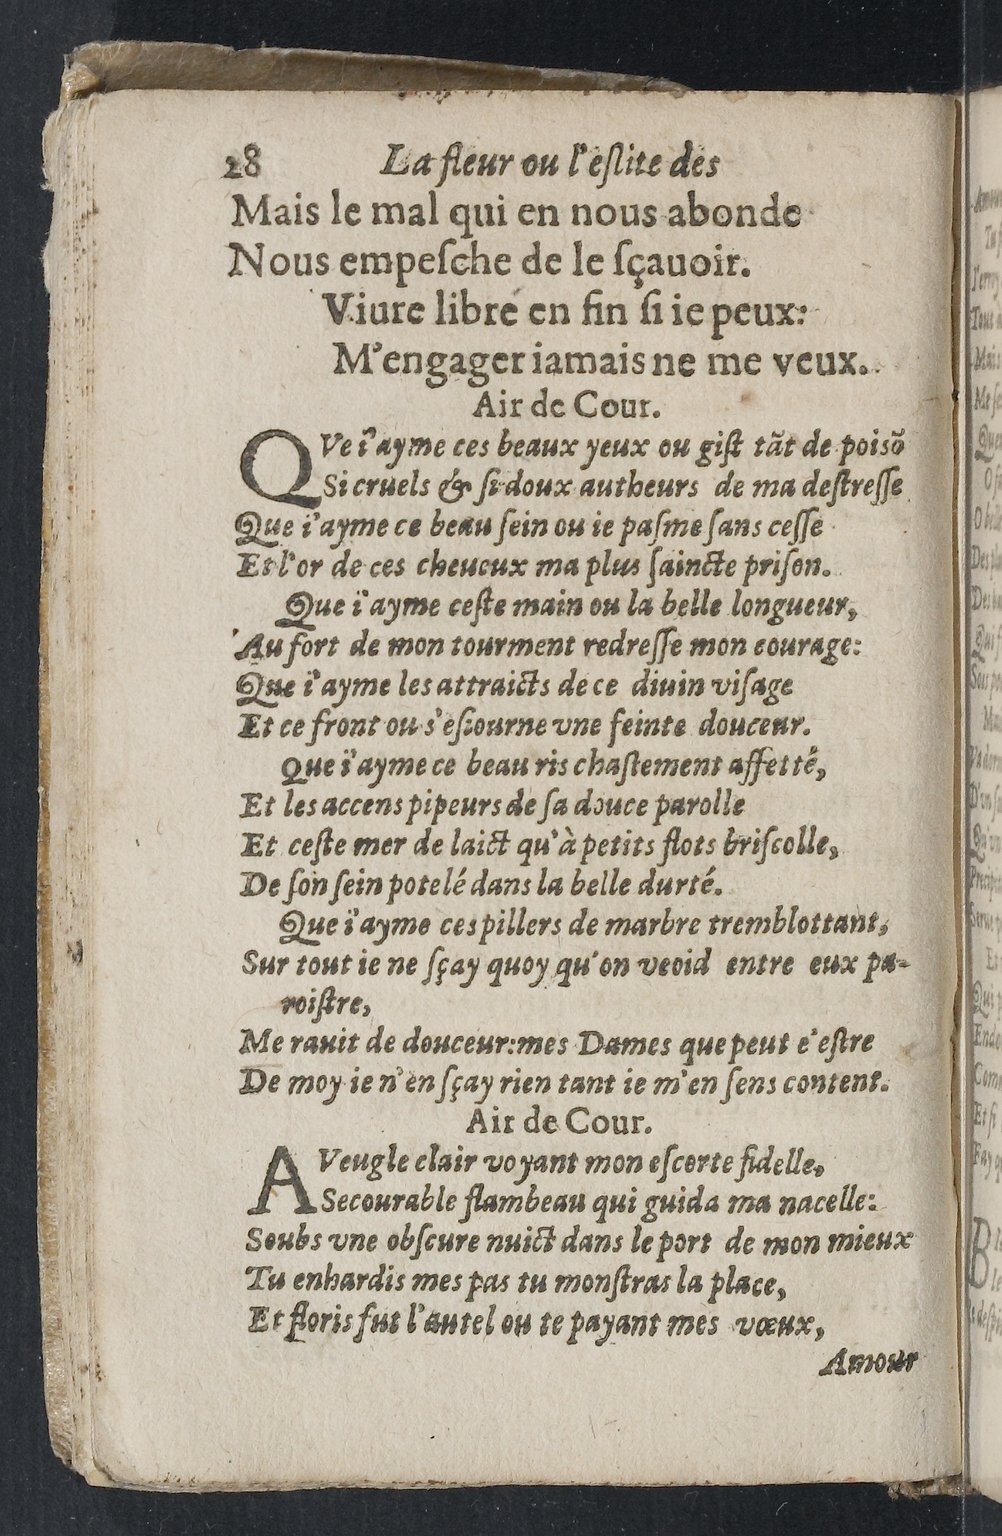 28 La fleur ou l'eſlite des
Mais le mal qui en nous abonde
Nous empeſche de le ſçauoir.
Viure libre en fin ſi ie peux:
M'engager iamais ne me veux.
Air de Cour.
QVe i'ayme ces beaux yeux ou giſt tãt de poisõ
Si cruels & ſi doux autheurs de ma deſtreſſe
Que i'ayme ce beau ſein ou ie paſme ſans ceſſe
Et l'or de ces cheueux ma plus ſaincte priſon.
Que i'ayme ceſte main ou la belle longueur,
Au fort de mon tourment redreſſe mon courage:
Que i'ayme les attraicts de ce diuin viſage
Et ce front ou s'eſiourne vne feinte douceur.
Que i'ayme ce beau ris chaſtement affetté,
Et les accens pipeurs de ſa douce parolle
Et ceſte mer de laict qu'à petits flots briſcolle,
De ſon ſein potelé dans la belle durté.
Que i'ayme ces pillers de marbre tremblottant,
Sur tout ie ne ſçay quoy qu'on veoid entre eux pa-
roiſtre,
Me rauit de douceur:mes Dames que peut e'eſtre
De moy ie n'en ſçay rien tant ie m'en ſens content.
Air de Cour.
AVeugle clair voyant mon eſcorte fidelle,
Secourable flambeau qui guida ma nacelle:
Soubs vne obſcure nuict dans le port de mon mieux
Tu enhardis mes pas tu monſtras la place,
Et floris fut l'autel ou te payant mes vœux,
Amour